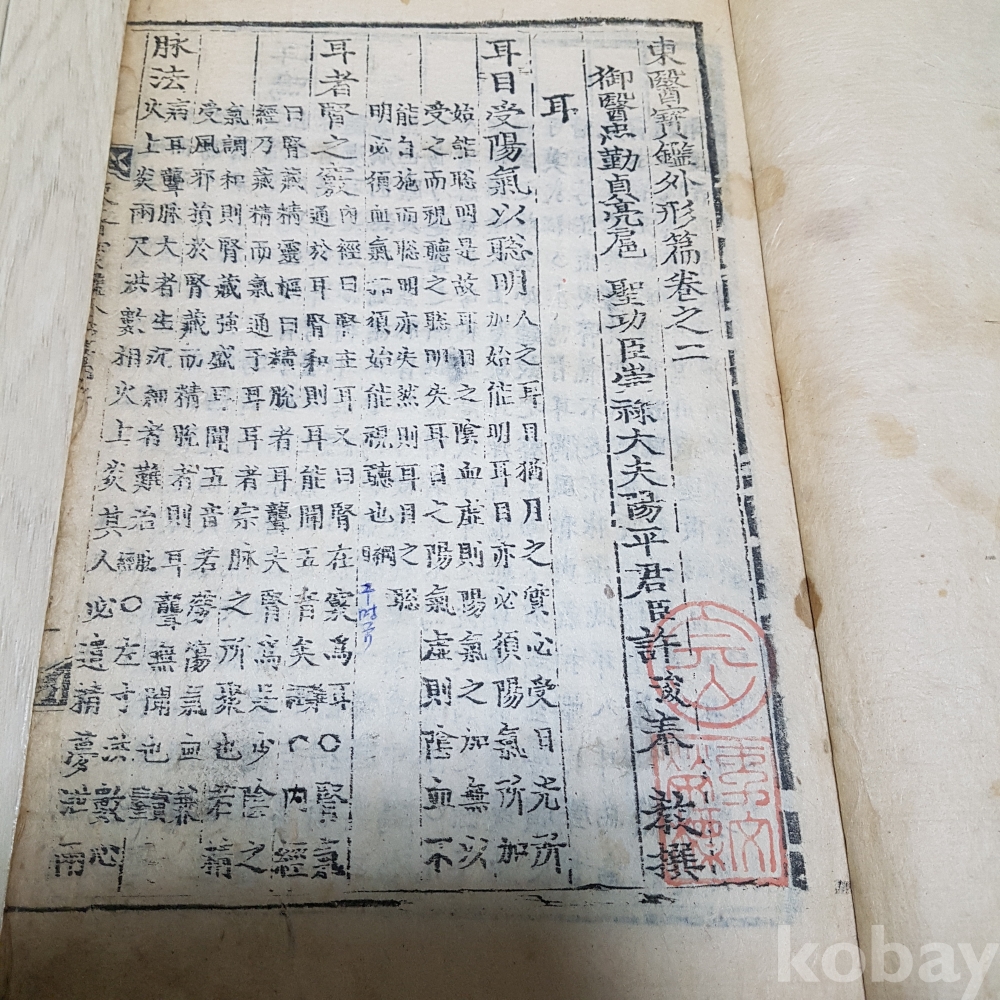 東醫寶鑑外形篇卷之二
御醫忠勤貞亮扈 聖功臣崇祿大夫陽平君臣許浚奉 教撰
耳
耳目受陽氣以聰明人之耳目猶月之質必受日光所
加始能明耳目亦必須陽氣所加
始能聰明是故耳目之陰血虛則陽氣之加無以
受之而視聽之聰明失耳目之陽氣虛則陰血不
能自施而聰明亦失然則耳目之聰
明必須血氣相須始能視聽也綱目
구멍규
耳者腎之竅內經曰腎主耳又曰腎在竅爲耳○腎氣
通於耳腎和則耳能聞五音矣難經○內經
曰腎藏精靈樞曰精脫者耳聾夫腎爲足少陰之
經乃藏精而氣通于耳耳者宗脉之所聚也若精
氣調和則腎藏強盛耳聞五音若勞傷氣血兼
受風邪損於腎藏而精脫者則耳聾無聞也
脉法病耳聾脉大者生沉細者難治脉經○左寸洪數心
火上炎兩尺洪數相火上炎其人必遺精夢泄兩
kobay